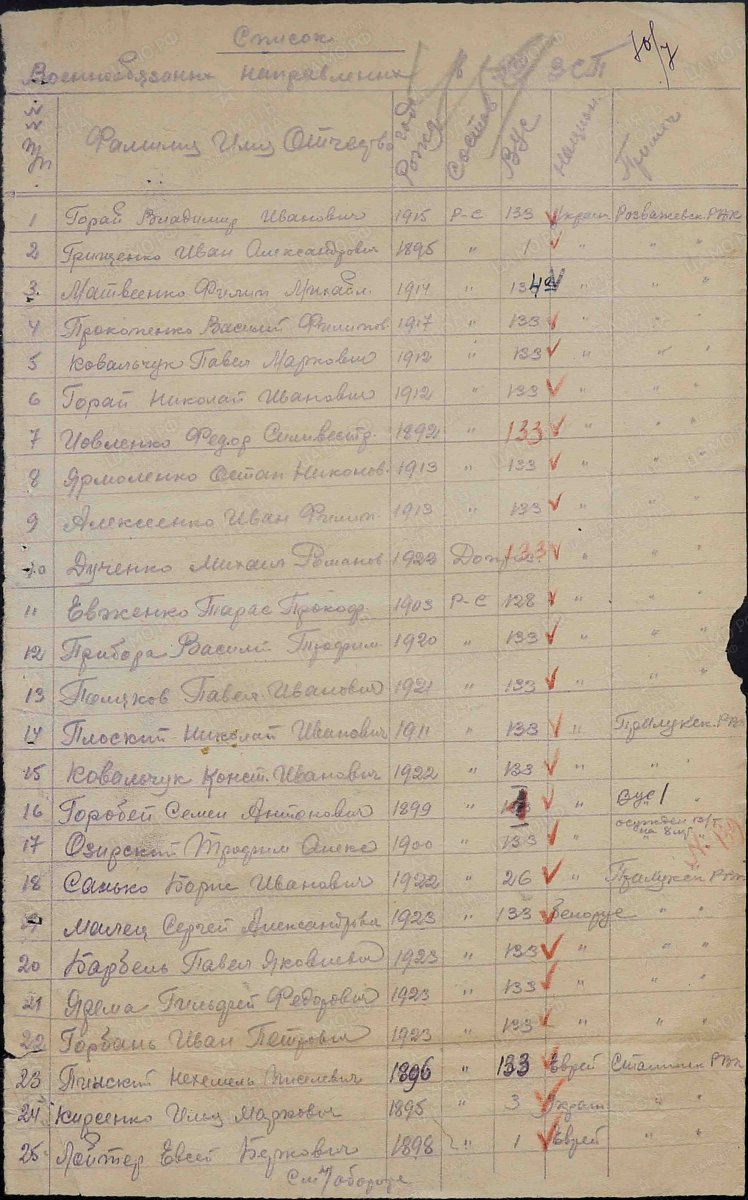 Список
Военнообязанных направленных в ЗСП
№№ п/п Фамилия Имя Отчество Года Рожд Состав ВУС Национ. Примеч
1 Горай Владимир Иванович 1915 Р-С 133 Украин Розважевск. РВК
2 Грищенко Иван Александрович 1895 " 1 " " "
3 Матвеенко Филип Михайл. 1914 " 134 " " "
4 Прокопенко Василий Филипов 1917 " 133 " " "
5 Ковальчук Павел Маркович 1912 " 133 " " "
6 Горай Николай Иванович 1912 " 133 " " "
7 Федор Силивестр. 1892 " 133 " " "
8 Ярмоленко Остап Никонов. 1913 " 133 " " "
9 Алексеенко Иван Филип 1913 " 133 " " "
10 Дученко Михаил Романов 1922 133 " " "
11 Евженко Тарас Прокоф. 1903 Р-С 128 " " "
12 Прибора Василий Трофим 1920 " 133 " " "
13 Поляков Павел Иванович 1921 " 133 " " "
14 Плоский Николай Иванович 1911 " 133 " Прилукск. РВК
15 Ковальчук Конст. Иванович 1922 " 133 " " "
16 Горобей Семен Антонович 1899 " " ВУС 1 "
17 Озирский Трофим Олекс 1900 " 133 " осужден на 8
18 Санько Борис Иванович 1922 " 26 " Прилукск РВК
19 Малец Сергей Александрович 1923 " 133 Белорус " "
20 Барбель Павел Яковлевич 1923 " 133 " " "
21 Ядема Гильдрей Федорович 1923 " 133 " " "
22 Горбань Иван Петрович 1923 " 133 " " "
23 Пинский Нехемель 1896 " 133 Еврей Сталинск РВК
24 Кирсенко Илья Маркович 1895 " 3 Украин " "
25 Лойтер Евсей Беркович 1898 " 1 Еврей " "
См. на обороте